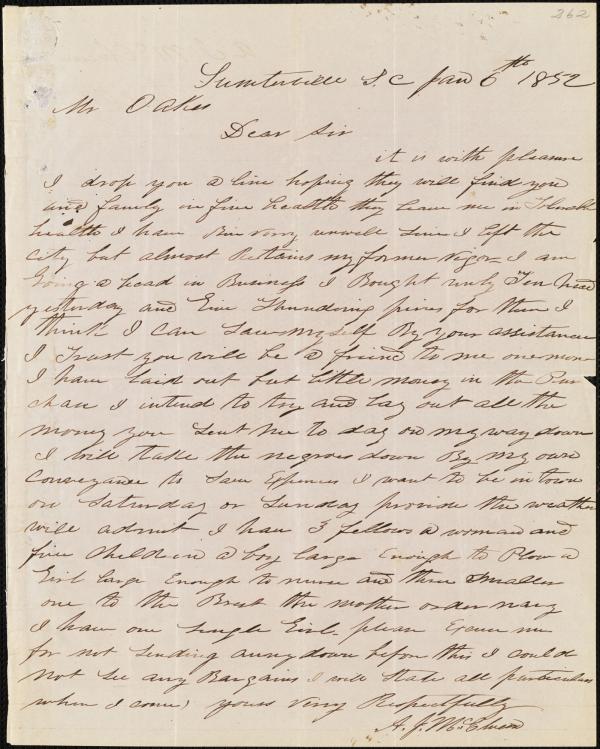 262
Sumterville S.C Jan 6th 1852
Mr Oakes
Dear Sir
it is with pleasure
I drop you a line hoping they will find you
and family in fine health they leave me in Tolerable
health I have Bin very unwell Sine I left the
City but almost Retains my former vigor I am
Going a head in Business I Bought only Ten head
yesterday and Give Thundering prises for them I
think I can Save my self By your assistance
I Trust you will be a friend to me one more
I have laid out but little money in the Pur
chase I intend to try and lay out all the
money you Sent me to day on my way down
I will take the negroes down By my own
Conveyance to Save Expences I want to be in town
on Saturday or Sunday provide the weather
will admit I have 3 fellows a woman and
five children a boy large Enough to Plow a
Girl large Enough to nurse and three Smaller
one to the Brest the mother ordernary
I have one single Girl. please Excuse me
for not Sending anny down before this I could
not See any Bargains I will State all particulars
when I come, yours Very Respectfully
A. J. McElveen